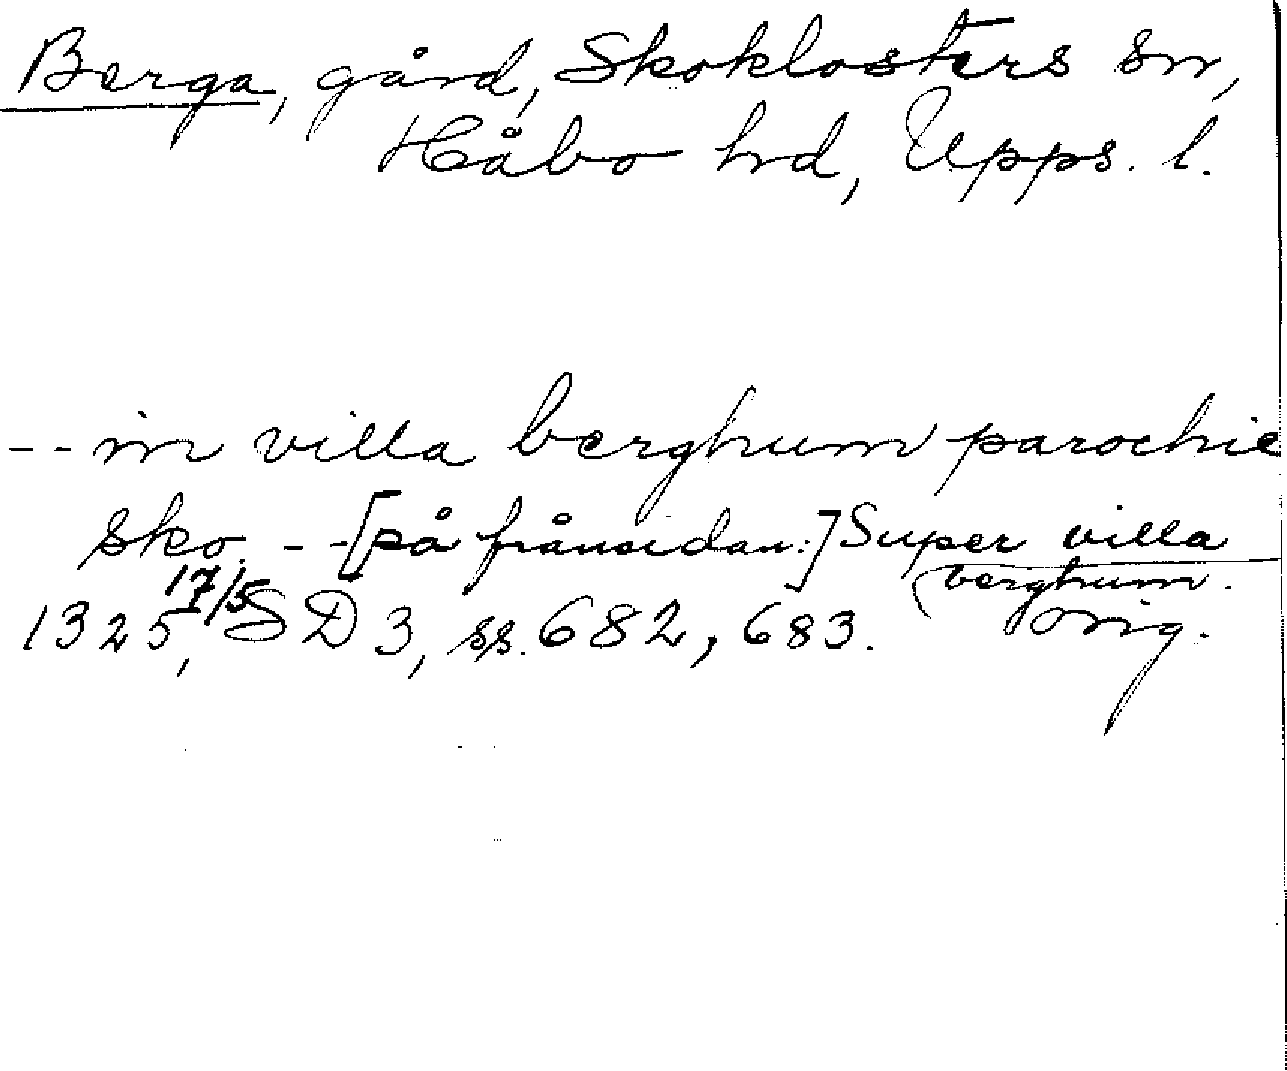 Berga, gård, Skoklosters sn,
Håbo hd, Upps. l.
-- in villa berghum parochie
sko. -- [på frånsidan:] Super villa
berghum.
1325 17/5, SD 3, ss. 682, 683. Orig.